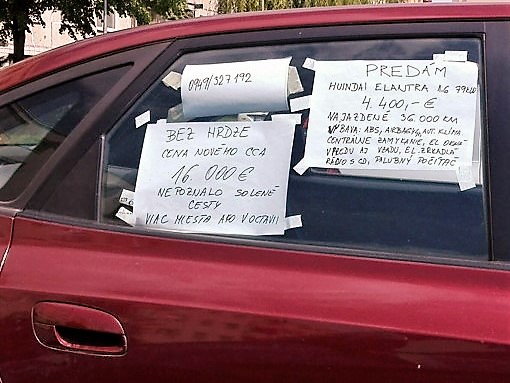 0949/327 192
BEZ HRDZE
CENA NOVÉHO CCA
16.000 €
NEPOZNALO SOLENÉ
CESTY
VIAC MIESTA AKO V OCTAVII
PREDÁM
HUINDAI ELANTRA 1.6 79KW
4.400,- €
NAJAZDENÉ 36.000 KM
VÝBAVA: ABS, AIRBAGY, AUT. KLÍMA
CENTRÁLNE ZAMYKANIE, EL. OKNÁ
VPREDU AJ VZADU, EL. ZRKADLÁ
RÁDIO S CD, PALUBNÝ POČÍTAČ